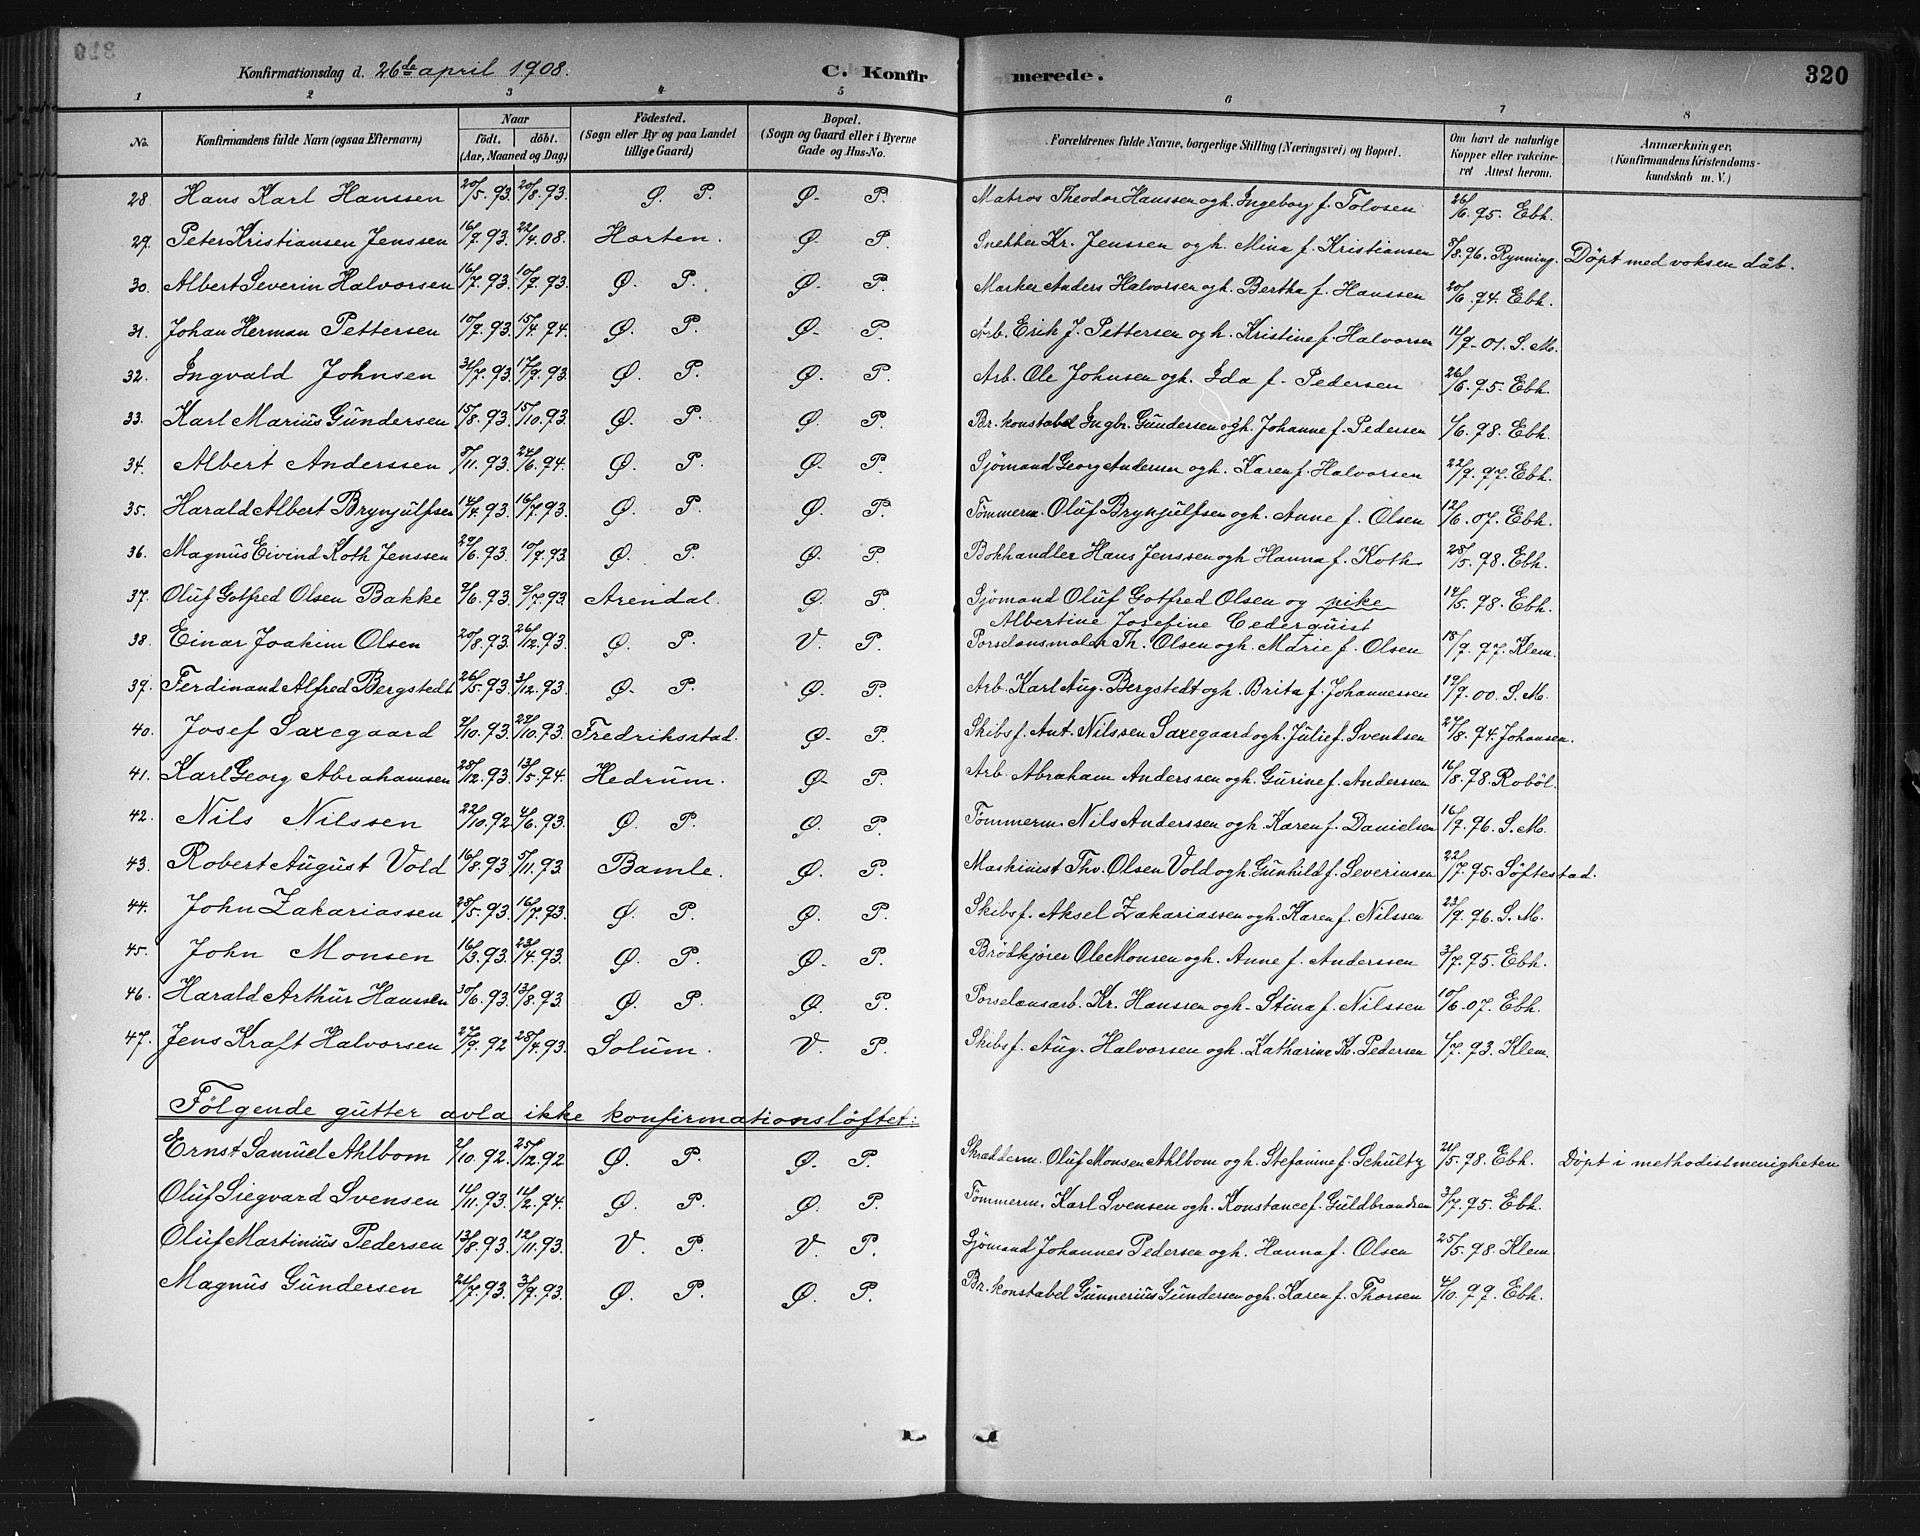 Konfirmationsdag d. 26de april 1908. C. Konfirmerede. 320
1 2 3 4 5 6 7 8
No. Konfirmandens fulde Navn (ogsaa Efternavn) Naar födt. döbt. (Aar, Maaned og Dag) Födested. (Sogn eller By og paa Landet tillige Gaard) Bopæl. (Sogn og Gaard eller i Byerne Gade og Hus-No. Forældrenes fulde Navne, borgerlige Stilling (Næringsvei) og Bopæl. Om havt de naturlige Kopper eller vakcineret Attest herom. Anmærkninger, (Konfirmandens Kristendomskundskab m. V.)
28. Hans Karl Hanssen 20/5. 93. 20/8. 93. Ø. P. Ø. P. Matros Theodor Hanssen ogh. Ingeborg f. Tolvsen 26/6. 95. Ebh.
29. Peter Kristiansen Jenssen 16/9. 93. 22/4. 08. Horten. Ø. P. Snekker Kr. Jenssen ogh. Mina f. Kristiansen 8/8. 96. Rynning. Döpt med voksen dåb.
30. Albert Severin Halvorsen 16/7. 93. 10/9. 93. Ø. P. Ø. P. Marker Anders Halvorsen ogh. Bertha f. Hanssen 20/6. 94. Ebh.
31. Johan Herman Pettersen 10/9. 93. 15/4. 94. Ø. P. Ø. P. Arb. Erik J. Pettersen ogh. Kristine f. Halvorsen 12/9. 01. S. M.
32. Ingvald Johnsen 31/7. 93. 17/9. 93. Ø. P. Ø. P. Arb. Ole Johnsen ogh. Ida f. Pedersen 26/6. 95. Ebh.
33. Karl Marius Gundersen 15/8. 93. 15/10. 93. Ø. P. Ø. P. Br. konstabel Ingbr. Gundersen ogh. Johanne f. Pedersen 1/6. 98. Ebh.
34. Albert Anderssen 8/11. 93. 24/6. 94. Ø. P. Ø. P. Sjömand Georg Andersen ogh. Karen f. Halvorsen 22/9. 97. Ebh.
35. Harald Albert Brynjulfsen 14/4. 93. 16/7. 93. Ø. P. Ø. P. Tömmerm. Oluf Brynjulfsen ogh. Anne f. Olsen 12/6. 07. Ebh.
36. Magnus Eivind Koth Jenssen 29/6. 93. 10/9. 93. Ø. P. Ø. P. Bokhandler Hans Jenssen ogh. Hanna f. Koth 28/5. 98. Ebh.
37. Oluf Gotfred Olsen Bakke 9/6. 93. 9/7. 93. Arendal. Ø. P. Sjömand Oluf Gotfred Olsen og pike 14/5. 98. Ebh.
Albertine Josefine Cederquist
38. Einar Joakim Olsen 20/8. 93. 26/12. 93. Ø. P. V. P. Porselænsmaler Th. Olsen ogh. Marie f. Olsen 18/9. 97. Klem.
39. Ferdinand Alfred Bergstedt 26/5. 93. 3/12. 93. Ø. P. Ø. P. Arb. Karl Aug. Bergstedt ogh. Brita f. Johannessen 19/9. 00. S. M.
40. Josef Saxegaard 9/10. 93. 29/10. 93. Fredriksstad. Ø. P. Skibsf. Ant. Nilssen Saxegaard ogh. Julie f. Svendsen 27/8. 94. Johansen.
41. Karl Georg Abrahamsen 28/12. 93. 13/5. 94. Hedrum. Ø. P. Arb. Abraham Anderssen ogh. Gurine f. Andersen 16/8. 98. Roböl.
42. Nils Nilssen 22/10. 92 4/6. 93. Ø. P. Ø. P. Tömmerm. Nils Anderssen ogh. Karen f. Danielsen 16/9. 96. S. M.
43. Robert August Vold 16/8. 93. 5/11. 93. Bamle. Ø. P. Maskinist Thv. Olsen Vold ogh. Gunhild f. Severinsen 22/7. 95. Söftestad.
44. John Zakariassen 28/5. 93. 16/7. 93. Ø. P. Ø. P. Skibsf. Aksel Zakariassen ogh. Karen f. Nilssen 23/9. 96. S. M.
45. John Monsen 16/3. 93. 23/4. 93. Ø. P. Ø. P. Brödkjörer Ole Monsen ogh. Anne f. Anderssen 3/7. 95. Ebh.
46. Harald Arthur Hanssen 30/6. 93. 13/8. 93. Ø. P. Ø. P. Porselænsarb. Kr. Hanssen ogh. Stina f. Nilssen 10/6. 07. Ebh.
47. Jens Kraft Halvorsen 27/9. 92 28/4. 93. Solum. V. P. Skibsf. Aug. Halvorsen ogh. Katharine K. Pedersen 1/7. 93. Klem.
Fölgende gutter avla ikke konfirmationslöftet:
Ernst Samuel Ahlbom 2/10. 92. 25/12. 92 Ø. P. Ø. P. Skrædderm. Oluf Monsen Ahlbom ogh. Stefanine f. Schultz 21/5. 98. Ebh. Döpt i methodistmenigheten
Oluf Siegvard Svensen 11/11. 93. 11/2. 94. Ø. P. Ø. P. Tömmerm. Karl Svensen ogh. Konstance f. Guldbrandsen 3/7. 95. Ebh.
Oluf Martinius Pedersen 13/8. 93. 12/11. 93. V. P. V. P. Sjömand Johannes Pedersen ogh. Hanna f. Olsen 25/5. 98. Klem.
Magnus Gundersen 21/7. 93. 3/9. 93. Ø. P. Ø. P. Br. konstabel Gunnerius Gundersen ogh. Karen f. Thorsen 4/10. 99. Ebh.